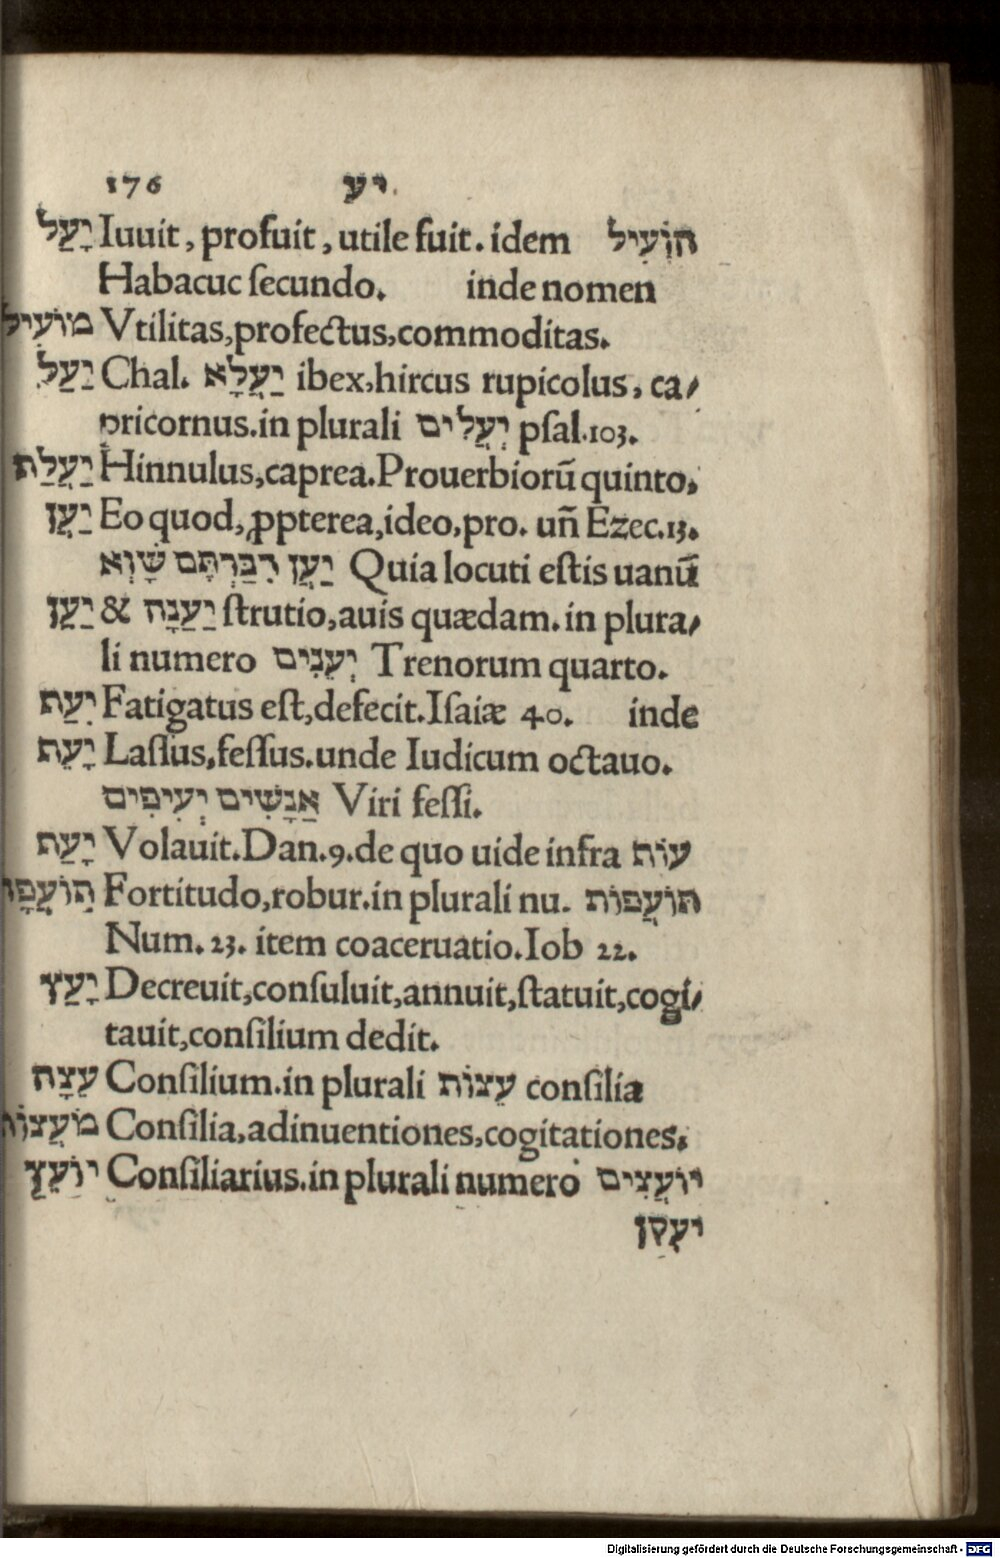 176 יע.
יָעַל Iuuit, profuit, utile fuit. idem הוֹעִיל
Habacuc ſecundo. inde nomen
מוֹעִיל Vtilitas, profectus, commoditas.
יַעַל Chal. יַעֲלָא ibex, hircus rupicolus, ca/
pricornus. in plurali יְעֲלִים pſal. 103.
יַעֲלַת Hinnulus, caprea. Prouerbiorū quinto.
יַעֲן Eo quod, ꝓpterea, ideo, pro. uñ Ezec. 13.
יַעֲן דִבַּרְתָּם שָׁוְא Quia locuti eſtis uanū
יַעַן & יַעַנָה ſtrutio, auis quædam. in plura/
li numero יְעֵנִים Trenorum quarto.
יָעַף Fatigatus eſt, defecit. Iſaiæ 40. inde
יָעֵף Laſſus, feſſus. unde Iudicum octauo.
אֲנָשִׁים יְעִיפִים Viri feſſi.
יָעַף Volauit. Dan. 9. de quo uide infra עוּף
Fortitudo, robur. in plurali nu. תּוֹעֲפוֹת
Num. 23. item coaceruatio. Iob 22.
יָעַץ Decreuit, conſuluit, annuit, ſtatuit, cogi/
tauit, conſilium dedit.
עֵצָה Conſilium. in plurali עֵצוֹת conſilia
מֹעֲצוֹת Conſilia, adinuentiones, cogitationes.
יוֹעֵץ Conſiliarius. in plurali numero יוֹעֲצִים
יעקן